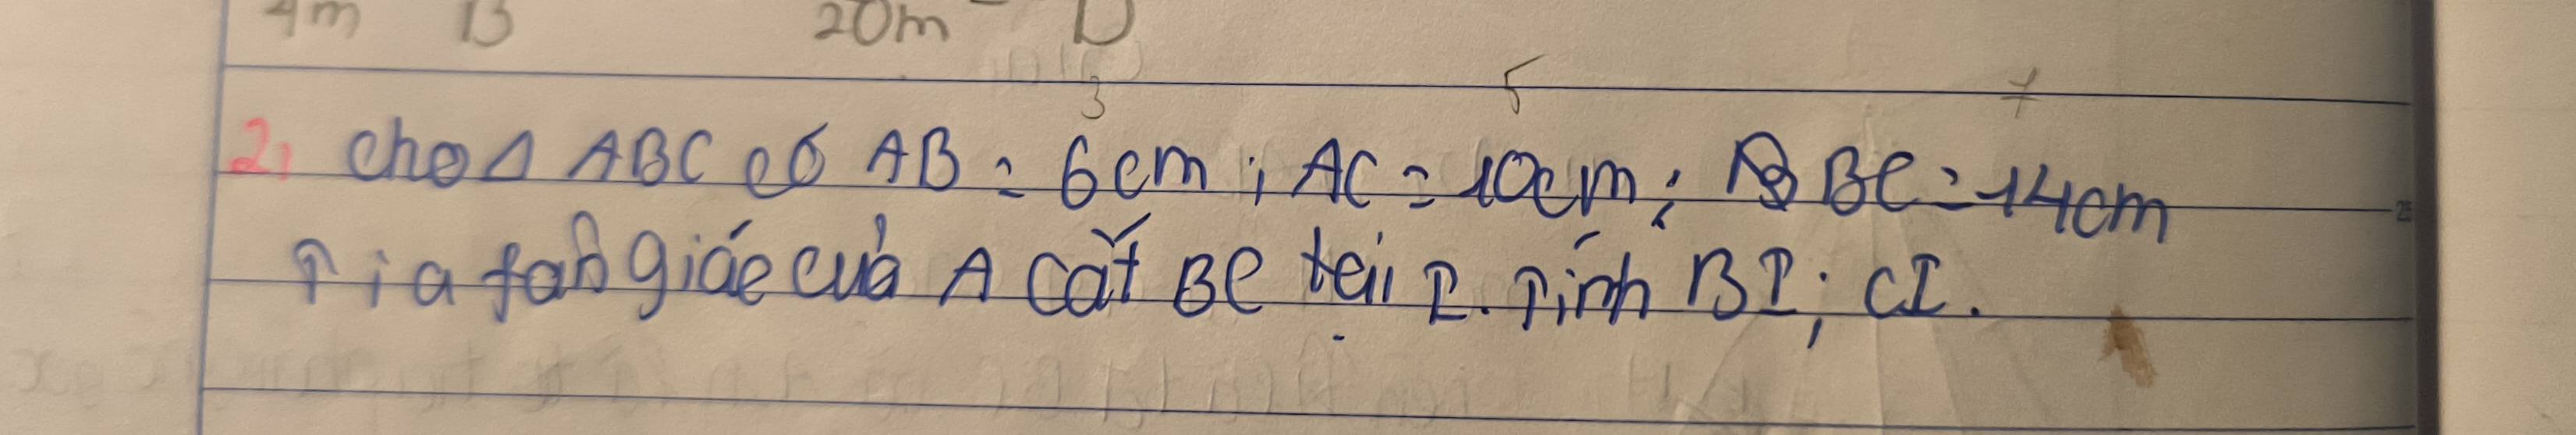 4m B 20m D
3 5 7
2, Cho Δ ABC có AB = 6cm ; AC = 10cm ; BC = 14cm
Tia fân giác của A cắt BC tại I. Tính BI; CI.